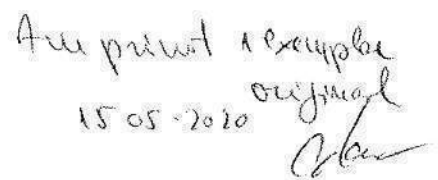 Am primit 1 exemplar
original
15 05 - 2020